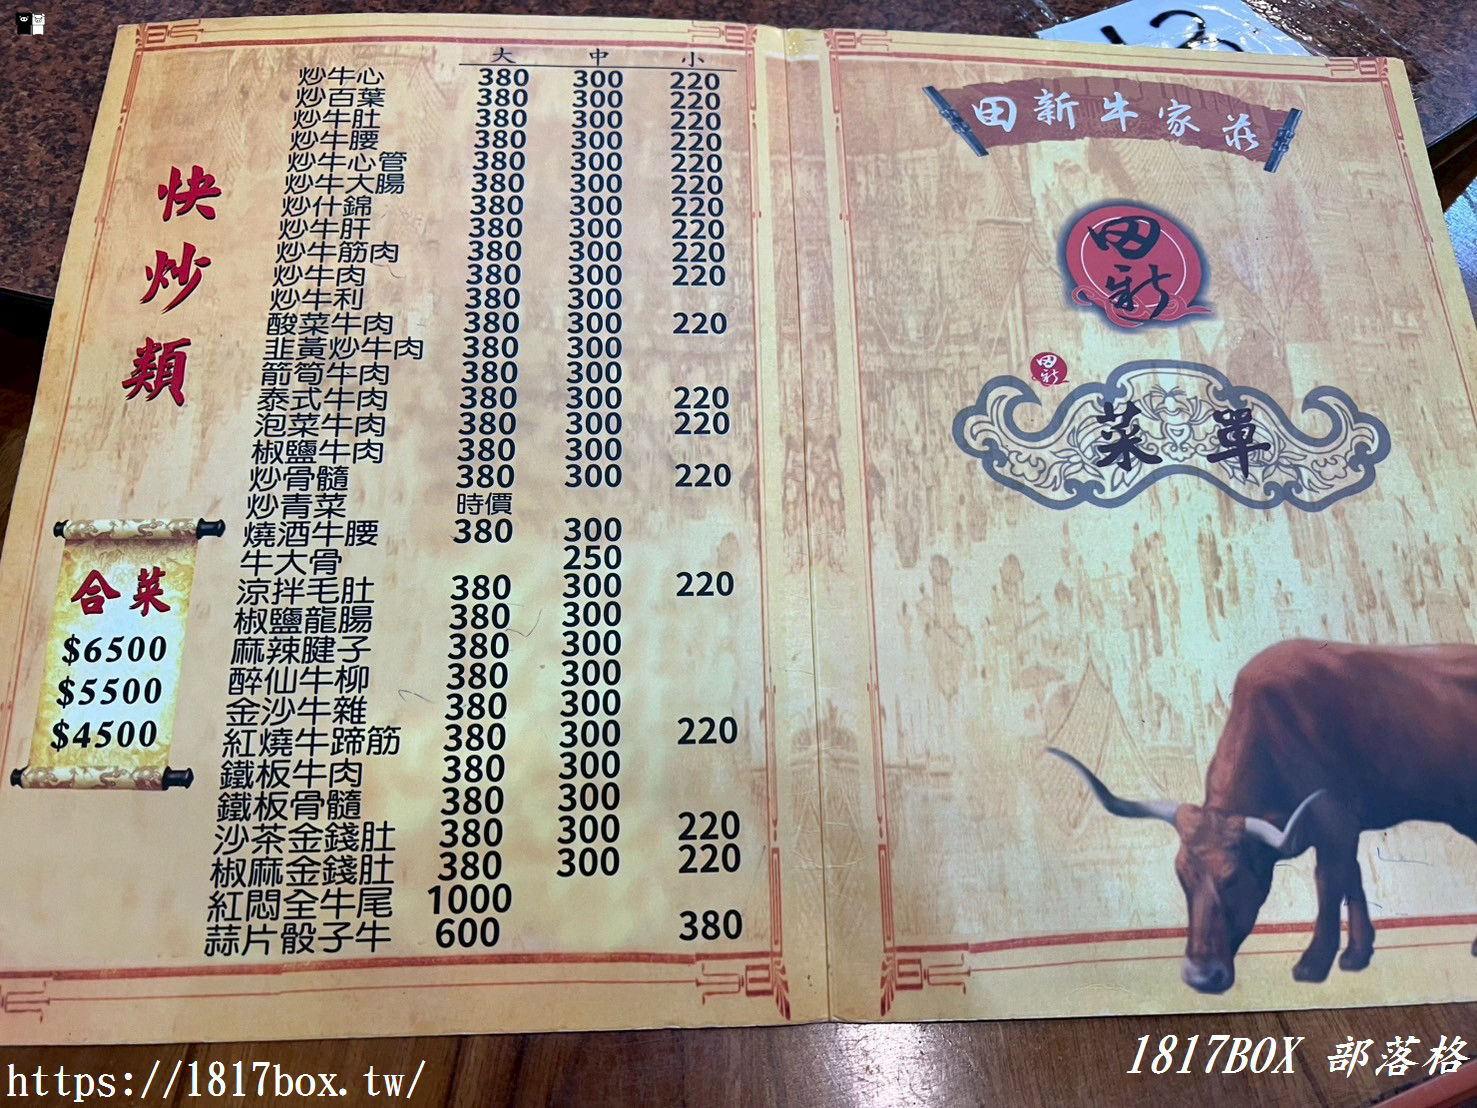 快炒類
大 中 小
炒牛心 380 300 220
炒百葉 380 300 220
炒牛肚 380 300 220
炒牛腰 380 300 220
炒牛心管 380 300 220
炒牛大腸 380 300 220
炒什錦 380 300 220
炒牛肝 380 300 220
炒牛筋肉 380 300 220
炒牛肉 380 300 220
炒牛利 380 300
酸菜牛肉 380 300 220
韭黃炒牛肉 380 300
箭筍牛肉 380 300
泰式牛肉 380 300 220
泡菜牛肉 380 300 220
椒鹽牛肉 380 300
炒骨髓 380 300 220
炒青菜 時價
燒酒牛腰 380 300
牛大骨 250
涼拌毛肚 380 300 220
椒鹽龍腸 380 300
麻辣腱子 380 300
醉仙牛柳 380 300
金沙牛雜 380 300
紅燒牛蹄筋 380 300 220
鐵板牛肉 380 300
鐵板骨髓 380 300
沙茶金錢肚 380 300 220
椒麻金錢肚 380 300 220
紅悶全牛尾 1000
蒜片骰子牛 600 380
合菜
$6500
$5500
$4500
田新牛家莊
田新
田新
菜單
1817BOX 部落格
https://1817box.tw/